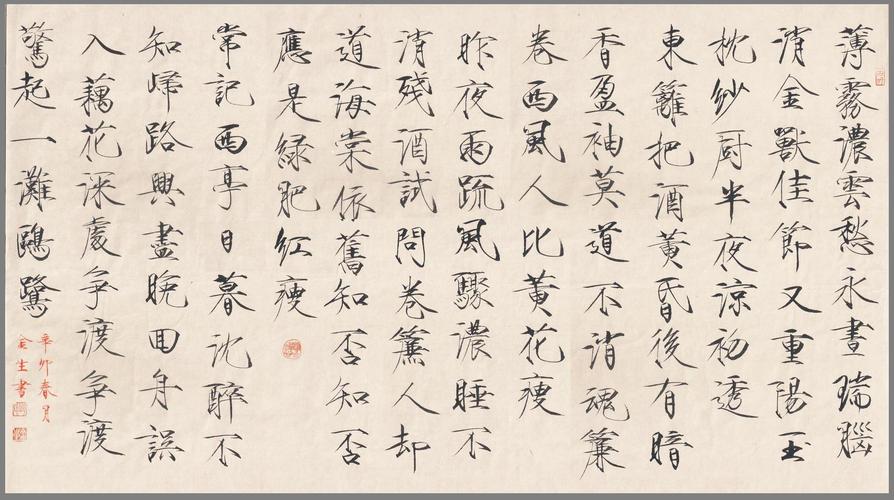 薄霧濃雲愁永晝瑞腦
消金獸佳節又重陽玉
枕紗厨半夜涼初透
東籬把酒黃昏後有暗
香盈袖莫道不消魂簾
卷西風人比黃花瘦
昨夜雨疏風驟濃睡不
消殘酒試問卷簾人却
道海棠依舊知否知否
應是緑肥紅瘦
常記西亭日暮沈醉不
知歸路興盡晚回舟誤
入藕花深處争渡争渡
驚起一灘鷗鷺
辛卯春月
金生書